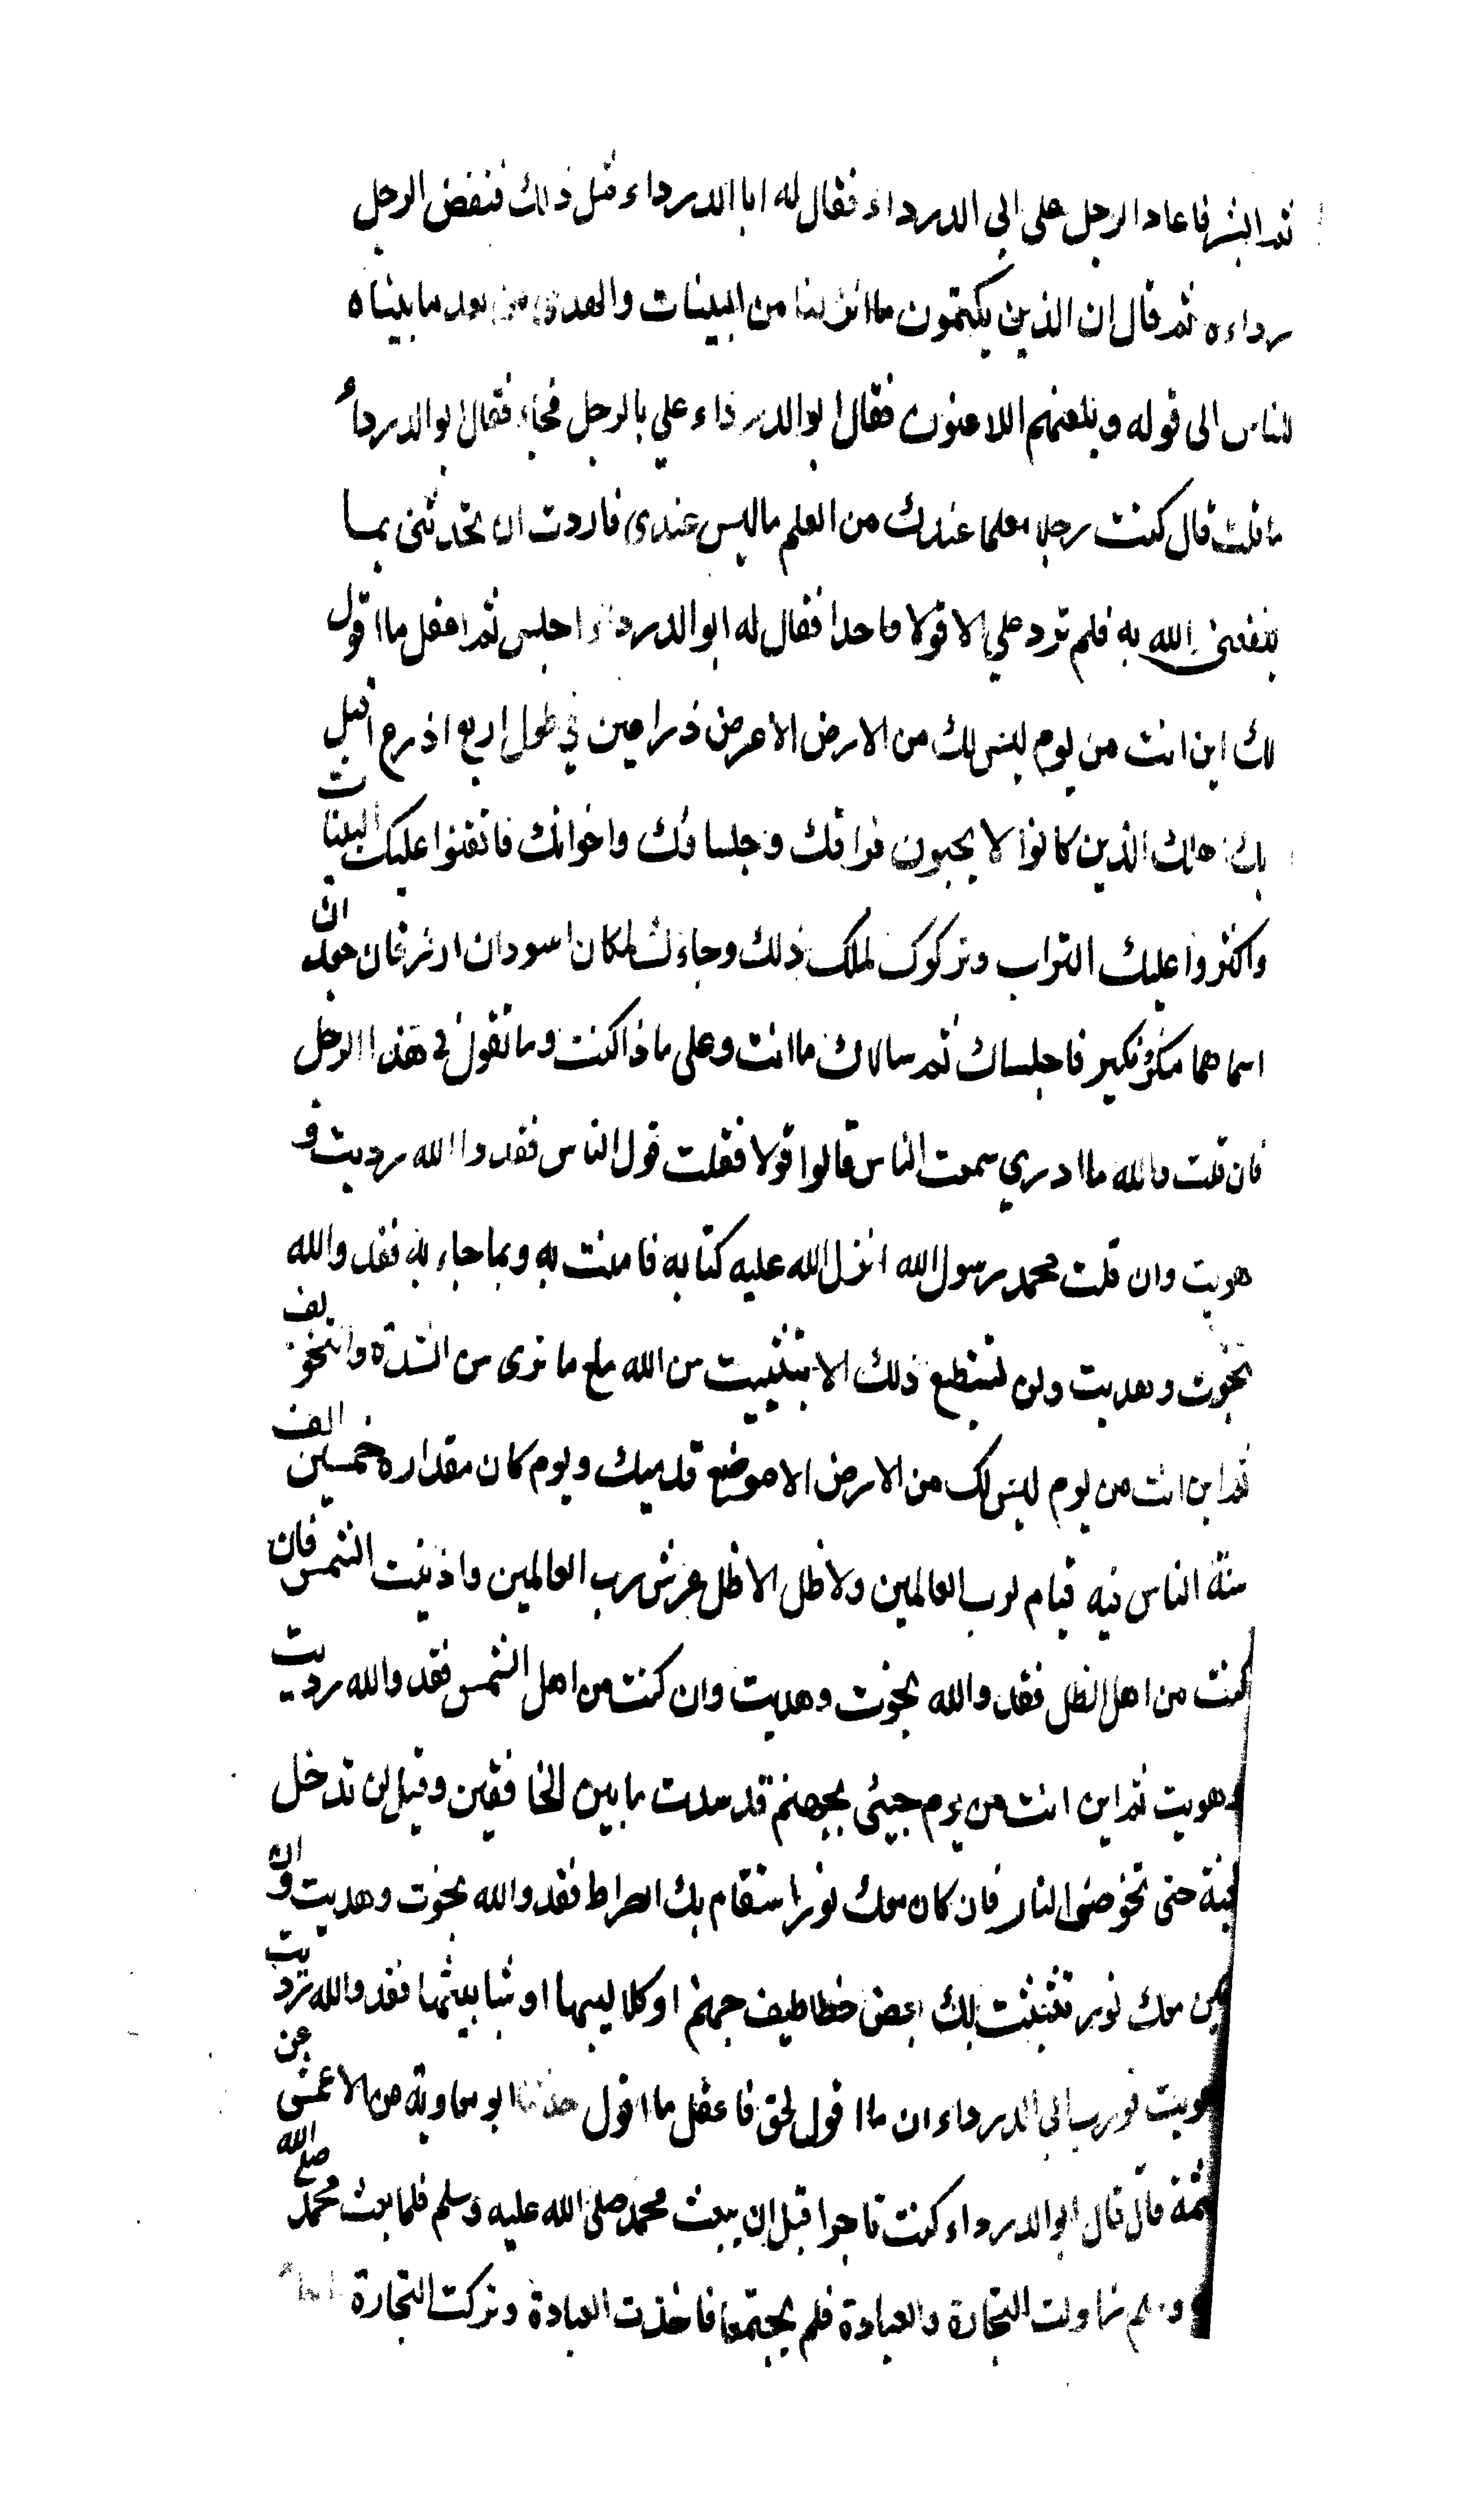 ثم ابشر فاعاد الرجل على ابي الدرداء فقال له ابا الدرداء مثل ذلك فنفض الرجل
رداءه ثم قال ان الذين يكتمون ما انزلنا من البينات والهدى من بعد ما بيناه
للناس الى قوله ويلعنهم اللاعنون فقال ابو الدرداء علي بالرجل فجاء فقال ابو الدرداء
ما قلت قال كنت رجلا معلما عندك من العلم ما ليس عندي فاردت ان تحدثني بما
ينفعني الله به فلم ترد علي الا قولا واحدا فقال له ابو الدرداء اجلس ثم اعقل ما اقول
لك اين انت من يوم ليس لك من الارض الا عرض ذراعين في طول اربع اذرع اقبل
بك اهلك الذين كانوا لا يحبون فراقك وجلساؤك واخوانك فاتقنوا عليك البنيان
واكثروا عليك التراب وتركوك لمتلك ذلك وجاءك ملكان اسودان ازرقان جعدان
اسماهما منكر ونكير فاجلساك ثم سالاك ما انت وعلى ماذا كنت وما تقول في هذا الرجل
فان قلت والله ما ادري سمعت الناس قالوا قولا فقلت قول الناس فقد والله رديت و
هويت وان قلت محمد رسول الله انزل الله عليه كتابه فامنت به وبما جاء به فقد والله
نجوت وهديت ولن تستطيع ذلك الا بتثبيت من الله مع ما ترى من الشدة والتخويف
ثم اين انت من يوم ليس لك من الارض الا موضع قدميك ويوم كان مقداره خمسين الف
سنة الناس فيه قيام لرب العالمين ولا ظل الا ظل عرش رب العالمين وادنيت الشمس فان
كنت من اهل الظل فقد والله نجوت وهديت وان كنت من اهل الشمس فقد والله رديت
وهويت ثم اين انت من يوم جيئ بجهنم قد سدت ما بين الخافقين وقيل لن تدخل
الجنة حتى تخوض النار فان كان معك نور استقام بك الصراط فقد والله نجوت وهديت وان
لم يكن معك نور تشبثت بك بعض خطاطيف جهنم او كلاليبها او شبابيثها فقد والله رديت
وهويت فورب ابي الدرداء ان ما اقول لحق فاعقل ما اقول حدثنا ابو معاوية عن الاعمش عن
خيثمة قال قال ابو الدرداء كنت تاجرا قبل ان يبعث محمد صلى الله عليه وسلم فلما بعث محمد صلى الله
وسلم زاولت التجارة والعبادة فلم يجتمعا فاخذت العبادة وتركت التجارة